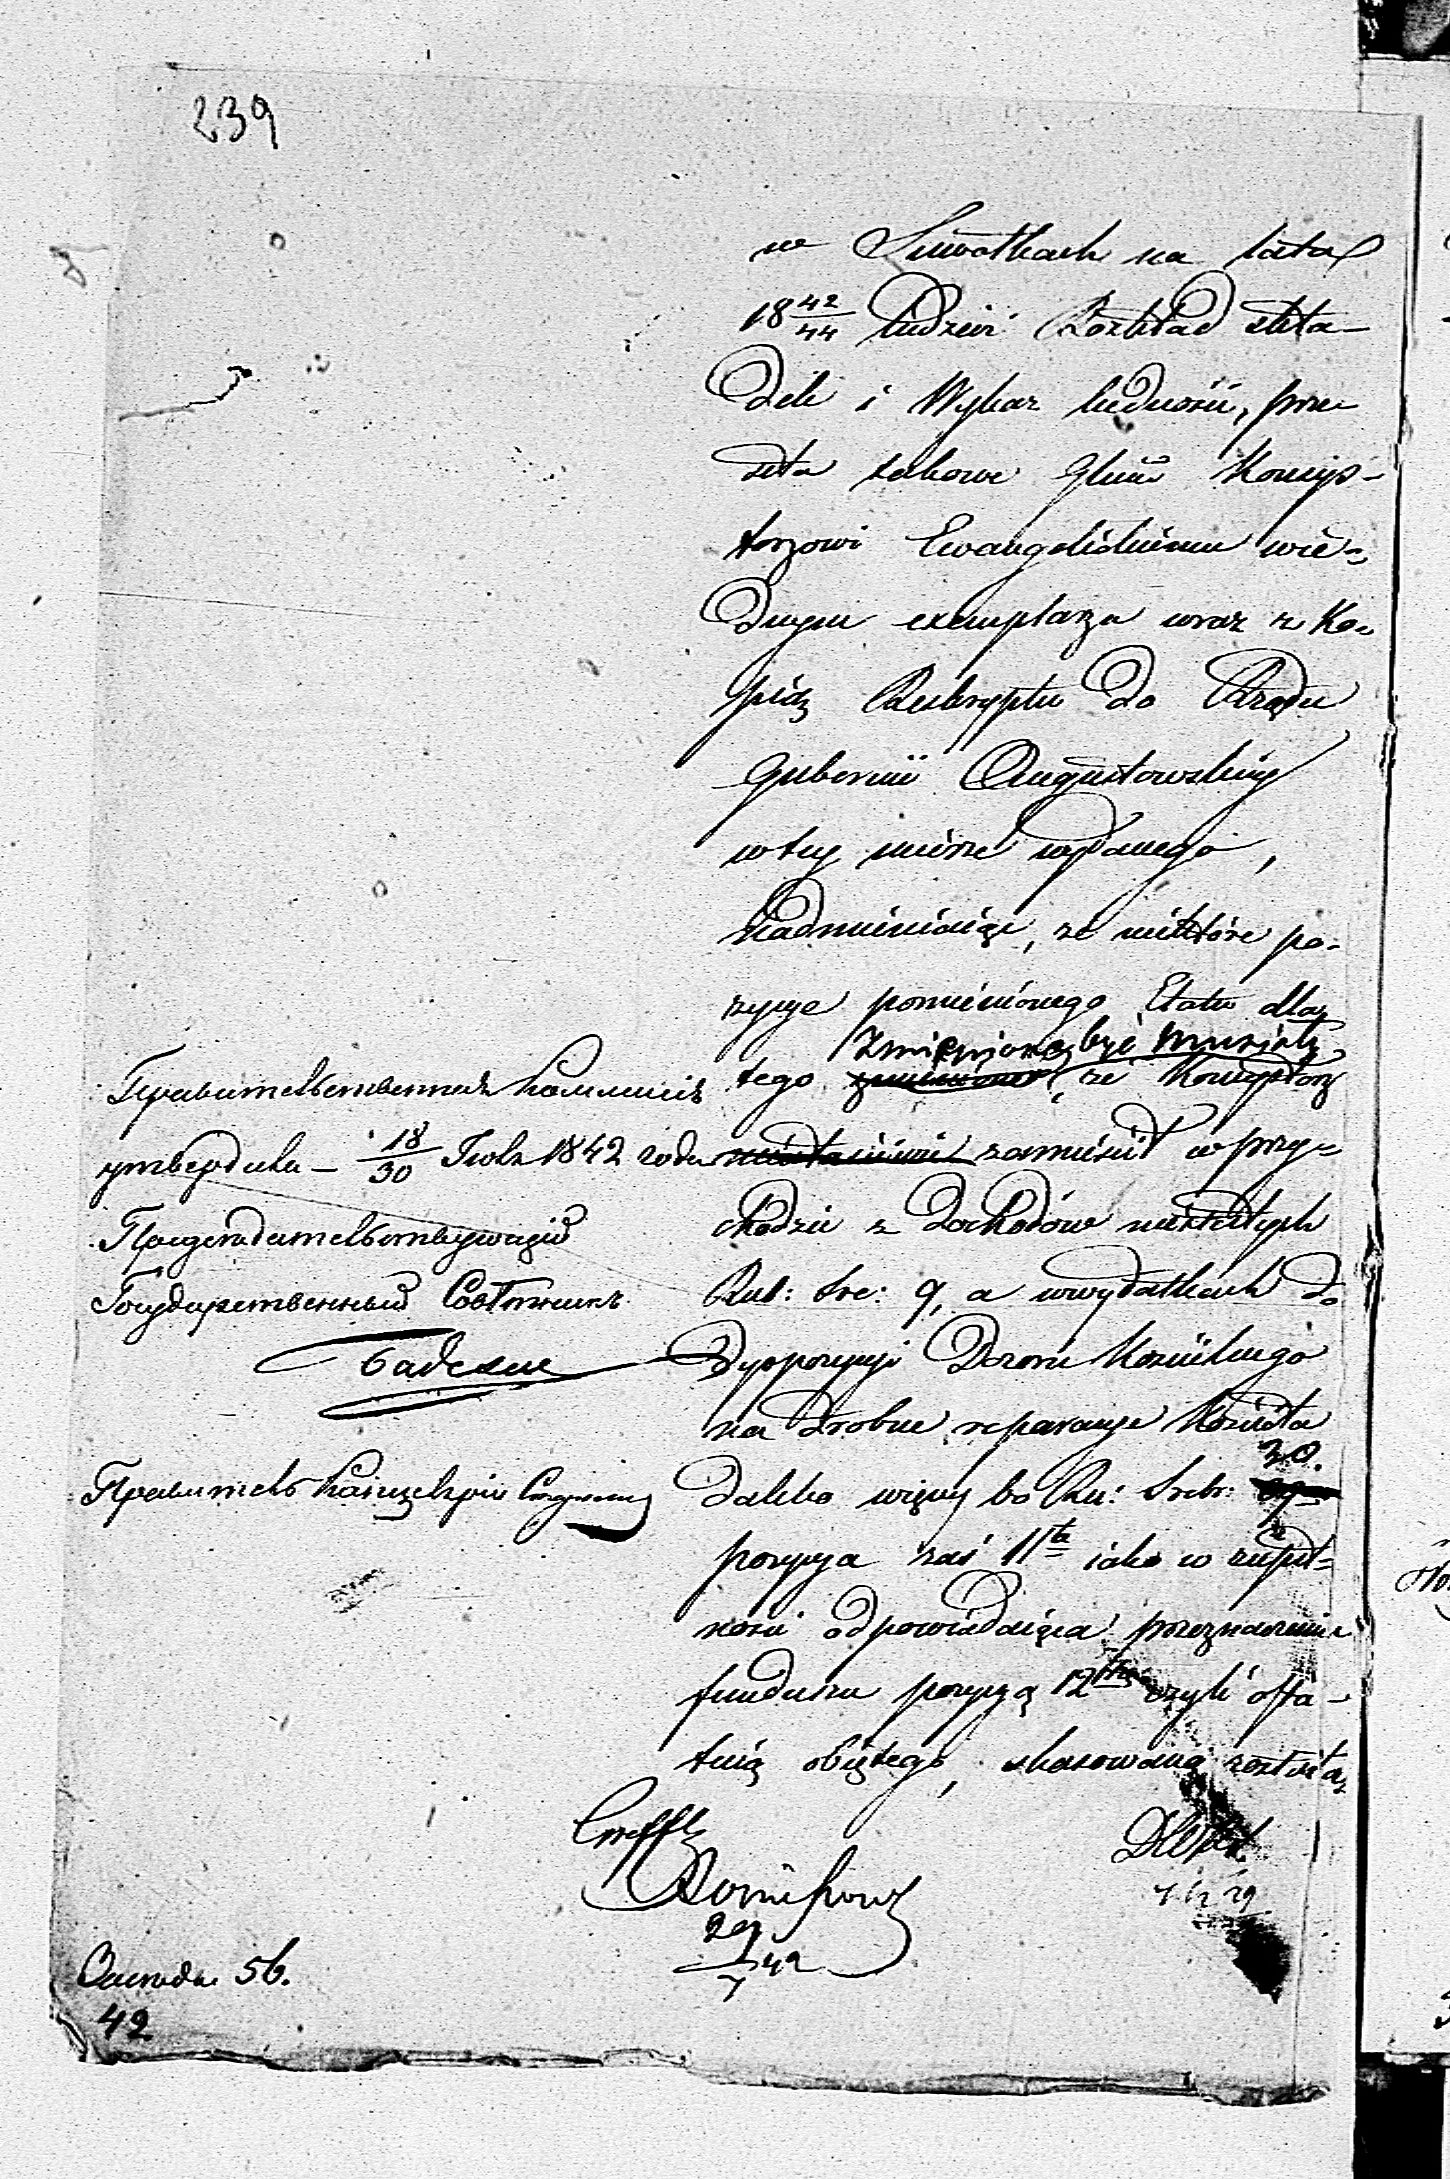 239
w Suwałkach na lata
18 42/44 tudzież Rozkład skła-
dek i Wykaz ludności, prze
seła takowe Głów Konsys-
torzowi Ewangelickiemu wie-
dnym exemplarzu wraz z Ko-
pią Reskryptu do Rządu
Gubernii Augustowskiey
w tey mierze wydanego,
nadmieniaiąc, że niektóre po-
zycye pomienionego Etatu dla
zmienione być musiały
tego że Konsystorz
zamieścił w przy-
chodzie z dochodów niestałych
Rub: sre: 9, a w wydatkach do
dyspozycyi Dozoru Kościelnego
na drobne reparacye Kościoła
30.
daleko więcey bo Ru: Srebr:
pozycya zaś 11ta iako w zupeł-
ności odpowiadaiąca przeznaczeniu
funduszu pozycyą 12tą czyli osta-
tnią obiętego, skasowaną została
Правительственная Коммисія
утвердила – 18/30 Іюля 1842 года
Предсѣдательствующій
Государственный Совѣтникъ
Правитель Канцеляріи
29/7 42
56.
42